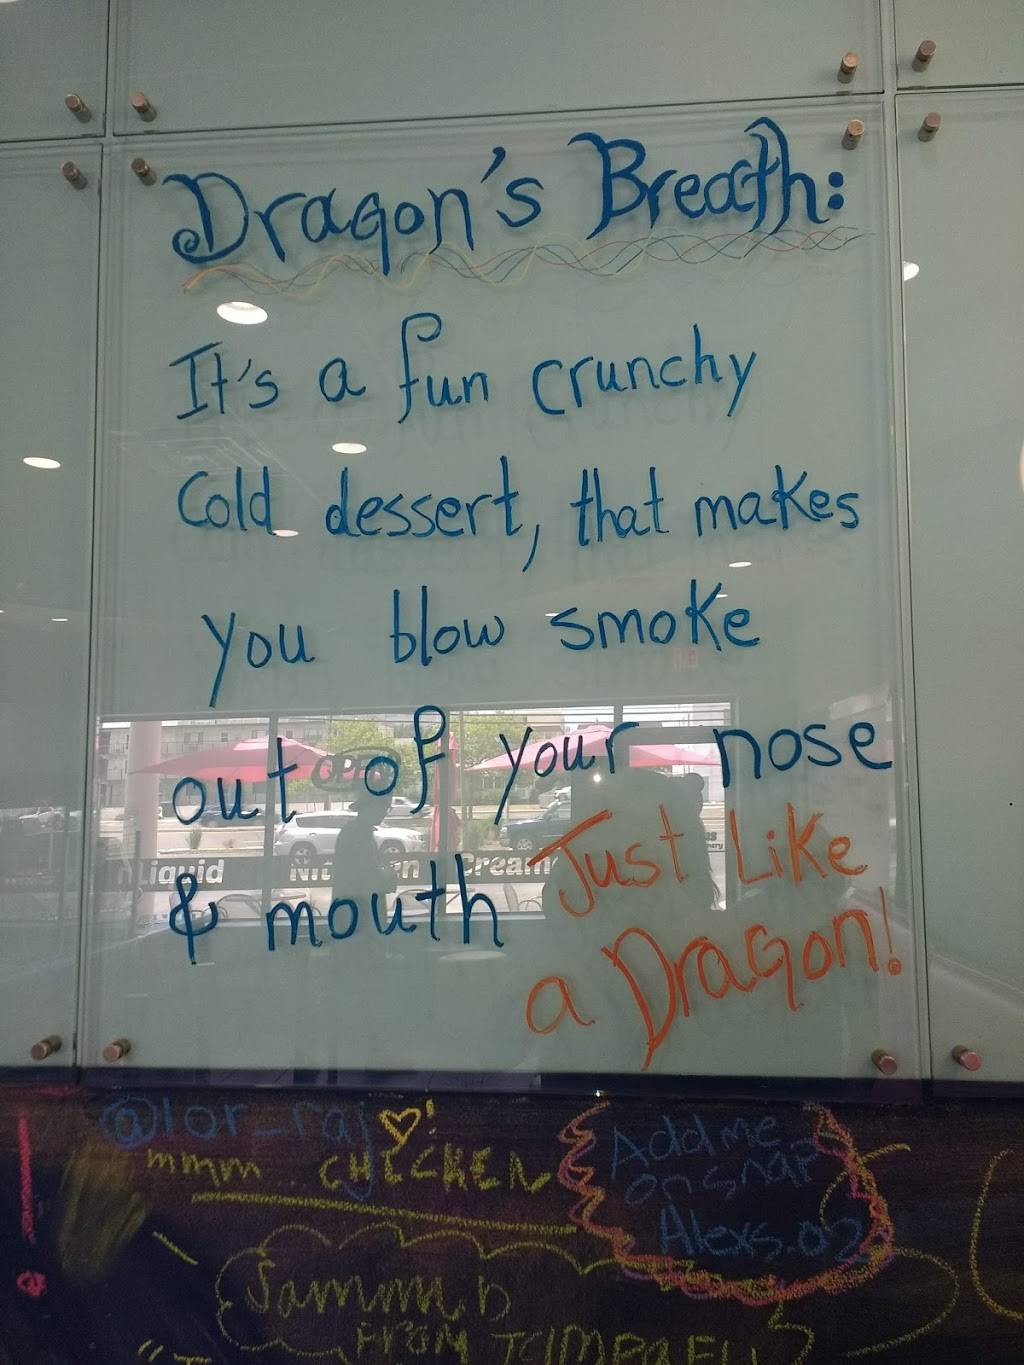 Dragon's Breath:
It's a fun crunchy
Cold dessert, that makes
you blow smoke
out of your nose
& mouth Just Like
a Dragon!
OPEN
Liquid Nitrogen Creamery
@lor_raj
mmm... CHICKEN
Add me
on snap
Alexs.02
FROM